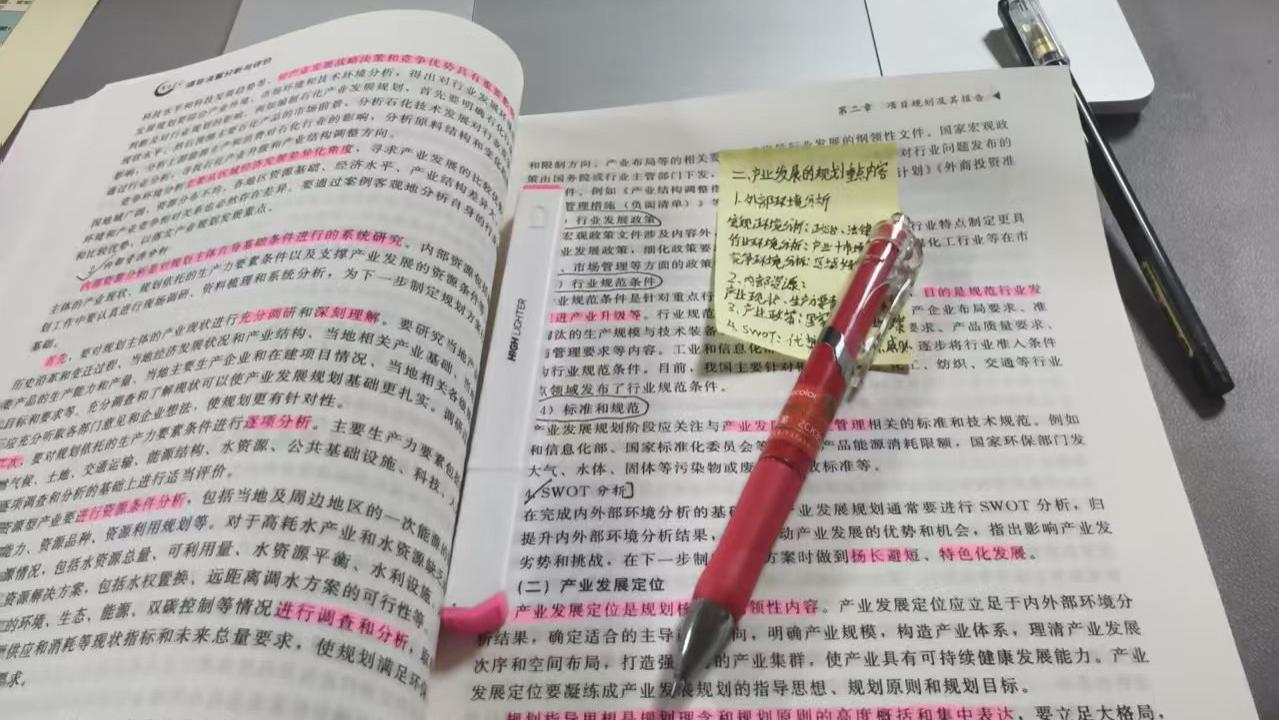 项目决策分析与评价
对产业发展战略决策和竞争优势具有
科技水平和科技发展趋势等,
环境和技术环境分析,得出对行业发展
发展规划要综合产业环境、
例如编制石化产业发展规划,首先要明确石化
判断及对行业规划的影响。
分析石化技术发展对行业
现状水平,然后预测主要石化产品的市场前景、
分析原料结构和变化
分析上游能源生产和消费对石化行业的影响,
寻找石化产业升级和产业结构调整方向。
通过行业分析,
竞争环境分析主要从区域经济发展差异化角度,寻求产业发展的比较优势
因地域广阔、资源分布不均,各地区资源基础、经济水平、产业结构差异
环境和产业竞争相对关系也必然存在差异。要通过案例客观地分析自身的
和比较优势,以落实产业规划发展重点。
内部资源分析是对规划主体自身基础条件进行的系统研究。内部资源包括
主体的产业现状、规划依托的生产力要素条件以及支撑产业发展的资源条件等
划工作中要认真进行现场调研、资料梳理和系统分析,为下一步制定规划方案
基础。
首先,要对规划主体的产业现状进行充分调研和深刻理解。要研究当地产
历史沿革和变迁过程、当地经济发展状况和产业结构、当地相关产业基础、当
要产品的生产能力和产量、当地主要生产企业和在建项目情况、当地相关各级
目标和要求等,充分调查和了解现状可以使产业发展规划基础更扎实。调研
应充分听取各部门意见和企业想法,使规划更有针对性。
要对规划依托的生产力要素条件进行逐项分析。主要生产力要素包括
气候、土地、交通运输、能源结构、水资源、公共基础设施、科技、人
逐项调查和分析的基础上进行适当评价。
资源型产业要进行资源条件分析,包括当地及周边地区的一次能源
能力、资源品种、资源利用规划等。对于高耗水产业和水资源缺
源情况,包括水资源总量、可利用量、水资源平衡、水利设施、
资源解决方案,包括水权置换、远距离调水方案的可行性等,
的环境、生态、能源、双碳控制等情况进行调查和分析,
供应和消耗等现状指标和未来总量要求,使规划满足环
要求。
HIGH LIGHTER
第二章 项目规划及其报告
和限制方向、产业布局等的相关要
行业发展的纲领性文件。国家宏观政
策由国务院或行业主管部门下发,
对行业问题发布的
件,例如《产业结构调整指
计划》《外商投资准
管理措施(负面清单)》等
)行业发展政策
宏观政策文件涉及内容外
行业特点制定更具
业发展政策,细化政策要
化工行业等在市
、市场管理等方面的政策
)行业规范条件
业规范条件是针对重点行
目的是规范行业发
进产业升级等。行业规范
产企业布局要求、准
汰的生产规模与技术装备
要求、产品质量要求、
管理要求等内容。工业和信息化
逐步将行业准入条件
行业规范条件。目前,我国主要针对
、纺织、交通等行业
点领域发布了行业规范条件。
4)标准和规范
产业发展规划阶段应关注与产业发
管理相关的标准和技术规范。例如
和信息化部、国家标准化委员会等
产品能源消耗限额,国家环保部门发
大气、水体、固体等污染物或废
放标准等。
4. SWOT 分析
在完成内外部环境分析的基
产业发展规划通常要进行 SWOT 分析,归
提升内外部环境分析结果,
动产业发展的优势和机会,指出影响产业发
劣势和挑战,在下一步制
方案时做到扬长避短、特色化发展。
(二)产业发展定位
产业发展定位是规划
领性内容。产业发展定位应立足于内外部环境分
析结果,确定适合的主导
向,明确产业规模,构造产业体系,理清产业发展
次序和空间布局,打造强
的产业集群,使产业具有可持续健康发展能力。产业
发展定位要凝练成产业发展规划的指导思想、规划原则和规划目标。
规划指导思想是规划理念和规划原则的高度概括和集中表达,要立足大格局,
二、产业发展的规划重点内容
1.外部环境分析
宏观环境分析:政治、法律
行业环境分析:产业+市场
竞争环境分析:区域
2.内部资源:
产业现状、生产力要素
3.产业政策:
4.SWOT:优